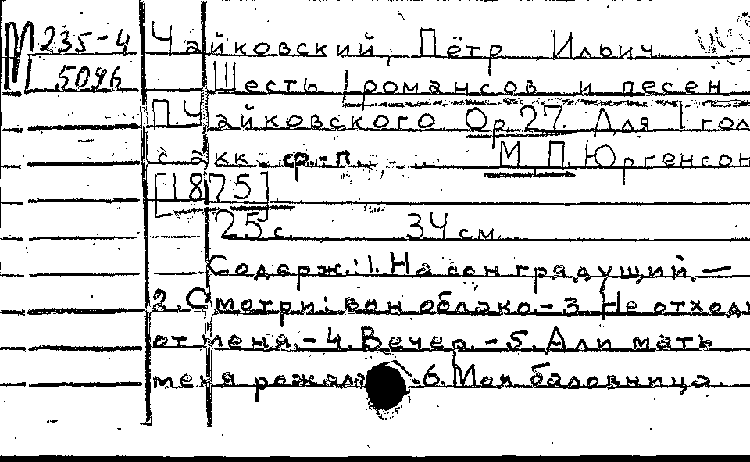 М 235-4 Чайковский, Пётр Ильич
5096 Шесть романсов и песен
П. Чайковского Ор. 27. Для 1 гол
с акк. ф-п. М. П. Юргенсон
[1875]
25 с. 34 см.
Содерж.: 1. На сон грядущий. —
2. Смотри: вон облако. - 3. Не отходи
от меня. - 4. Вечер. - 5. Али мать
меня рожала. 6. Моя баловница.